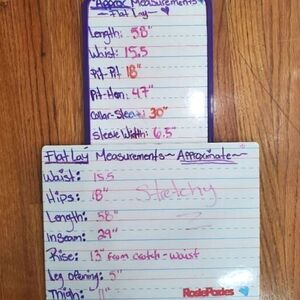 Approx Measurements
~ Flat Lay ~
Length: 58"
Waist: 15.5
Pit-Pit 18"
Pit-Hem: 47"
Collar-Sleeve: 30"
Sleeve Width: 6.5"
Flat Lay Measurements ~ Approximate ~
Waist: 15.5
Hips: 18"
Stretchy
Length: 58"
Inseam: 29"
Rise: 13" from crotch-waist
Leg Opening: 5"
Thigh: